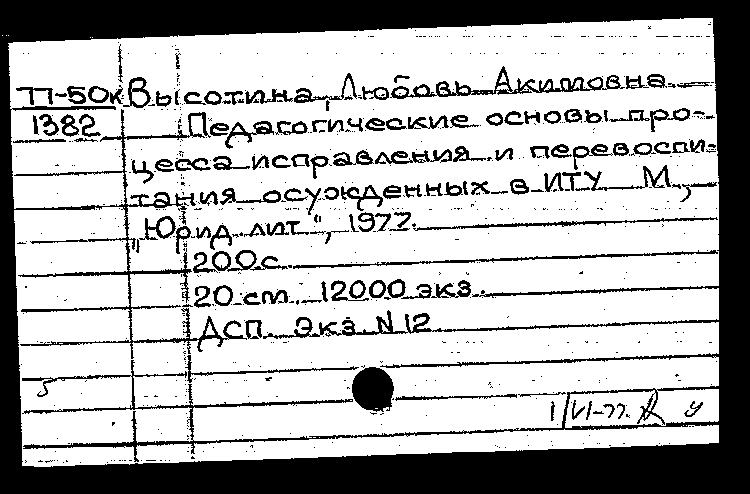 П-50к Высотина, Любовь Акимовна
1382 Педагогические основы про-
цесса исправления и перевоспи-
тания осужденных в ИТУ М.,
"Юрид. лит.", 1977.
200 с.
20 cm. 12000 экз.
ДСП. Экз. N 12
5
1/VI-77. у